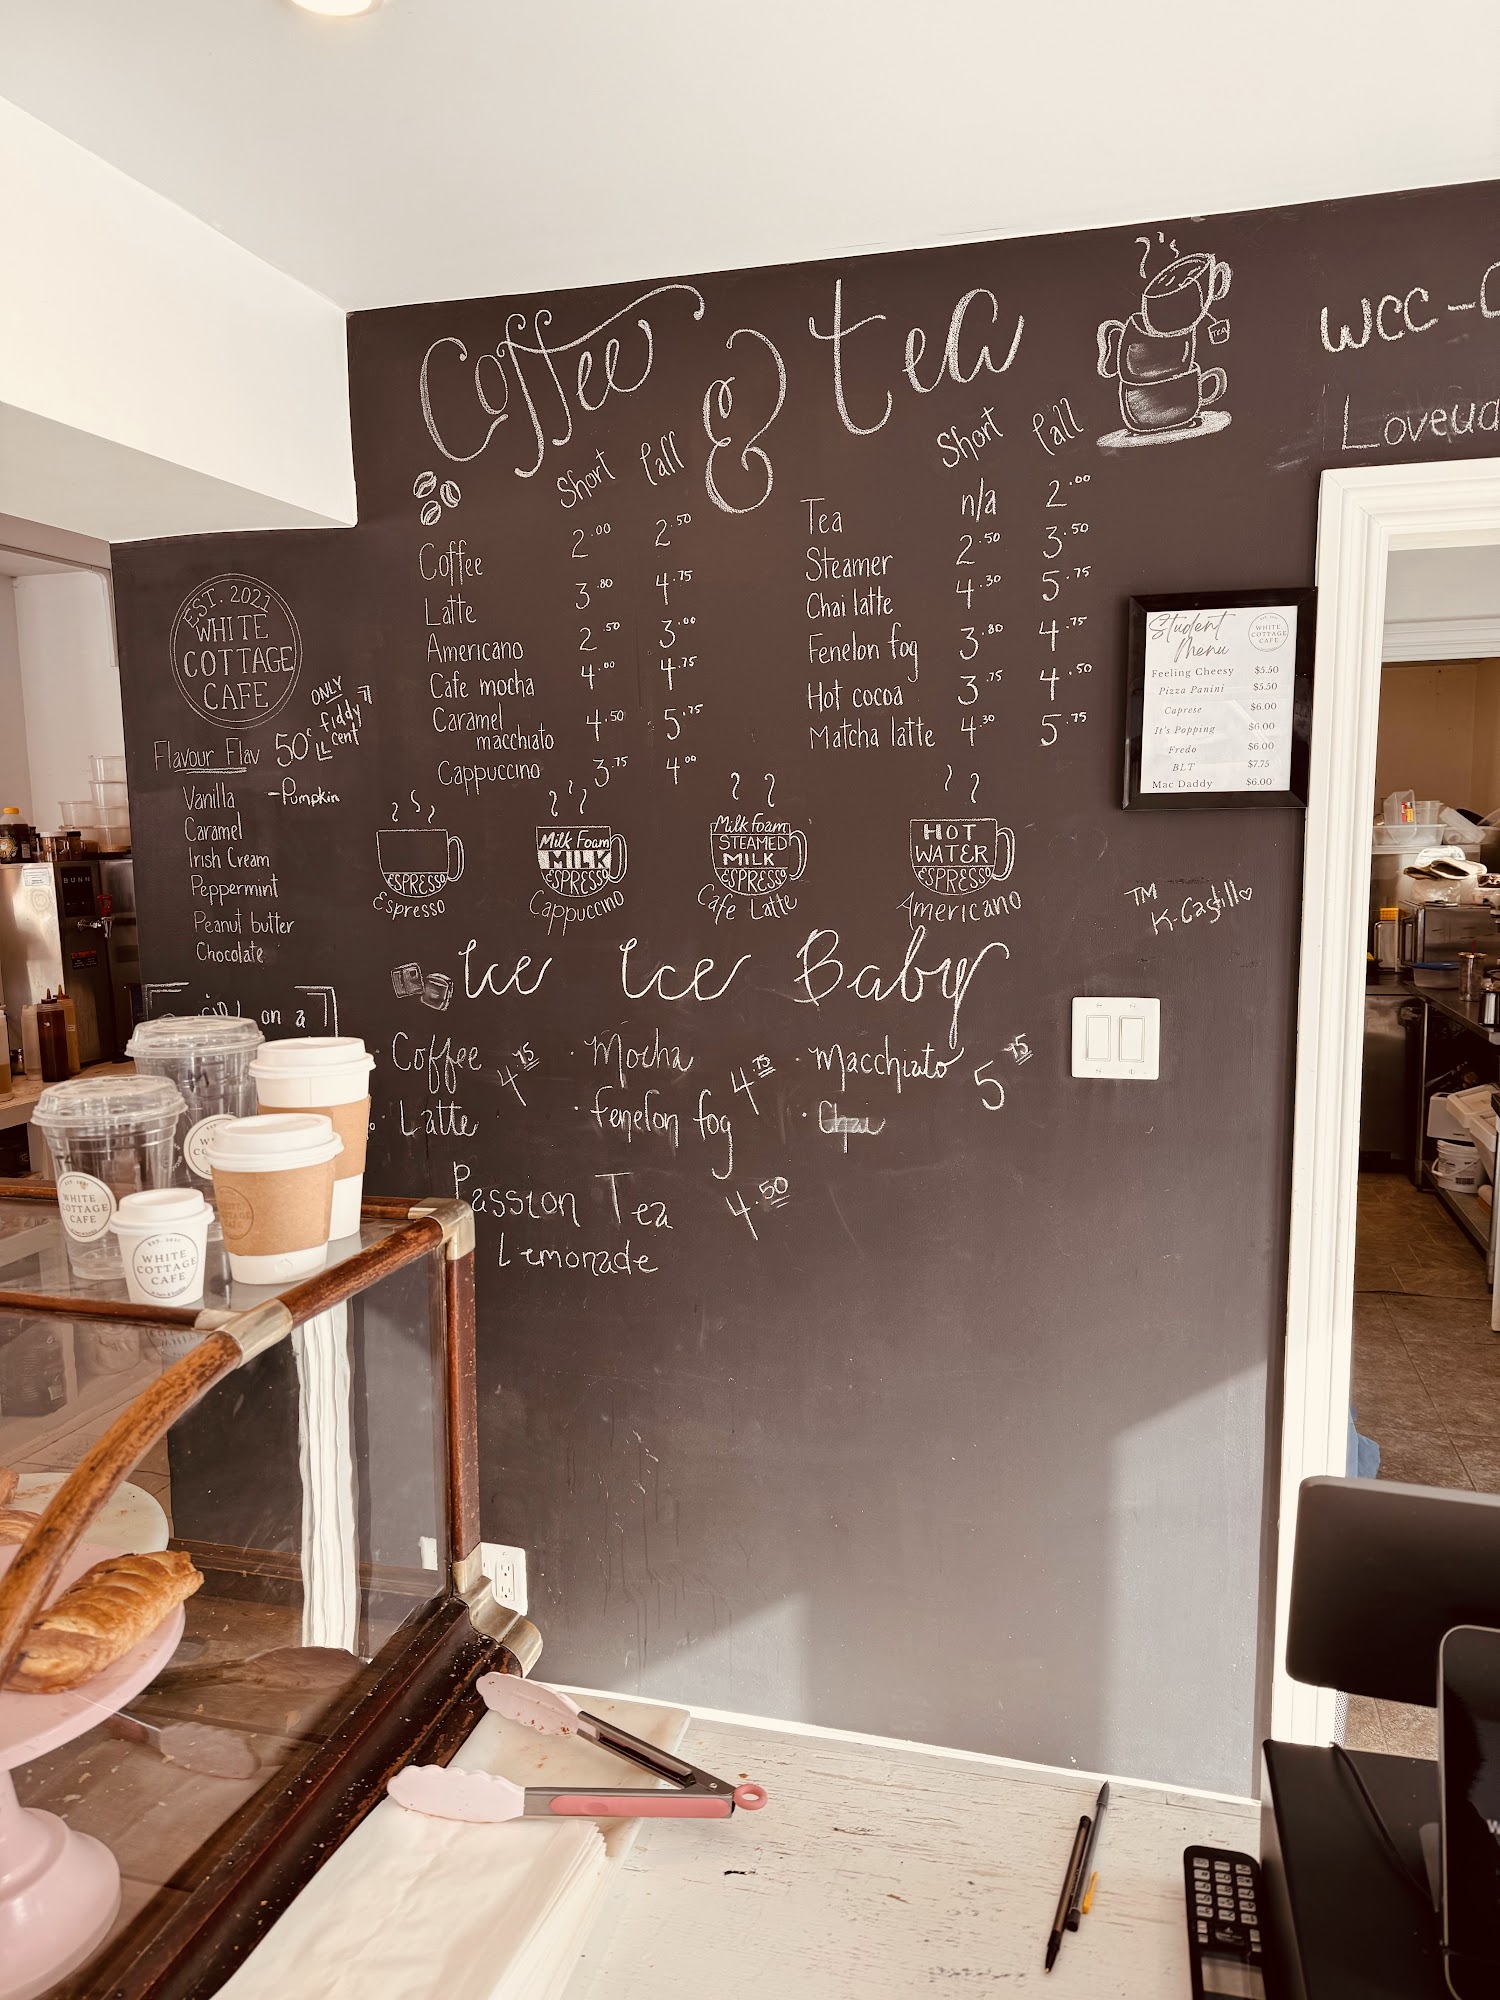 Coffee & tea
WCC-
Short Tall
Coffee 2.00 2.50
Latte 3.80 4.75
Americano 2.50 3.00
Cafe mocha 4.00 4.75
Caramel
macchiato 4.50 5.75
Cappuccino 3.75 4.00
Short Tall
Tea n/a 2.00
Steamer 2.50 3.50
Chai latte 4.30 5.75
Fenelon fog 3.80 4.75
Hot cocoa 3.75 4.50
Matcha latte 4.30 5.75
TEA
EST. 2021
WHITE
COTTAGE
CAFE
Flavour Flav 50¢
ONLY
fiddy
cent
Vanilla -Pumpkin
Caramel
Irish Cream
Peppermint
Peanut butter
Chocolate
on a
ESPRESSO
Espresso
Milk Foam
MILK
ESPRESSO
Cappuccino
Milk Foam
STEAMED
MILK
ESPRESSO
Cafe Latte
HOT
WATER
ESPRESSO
Americano
Student
Menu
WHITE
COTTAGE
CAFE
Feeling Cheesy $5.50
Pizza Panini $5.50
Caprese $6.00
It's Popping $6.00
Fredo $6.00
BLT $7.75
Mac Daddy $6.00
TM
Ice Ice Baby
· Coffee 4.75
· Latte
· Mocha 4.75
· Fenelon fog
· Macchiato 5.75
· Chai
Passion Tea 4.50
Lemonade
BUNN
WHITE
COTTAGE
CAFE
EST. 2021
WHITE
COTTAGE
CAFE